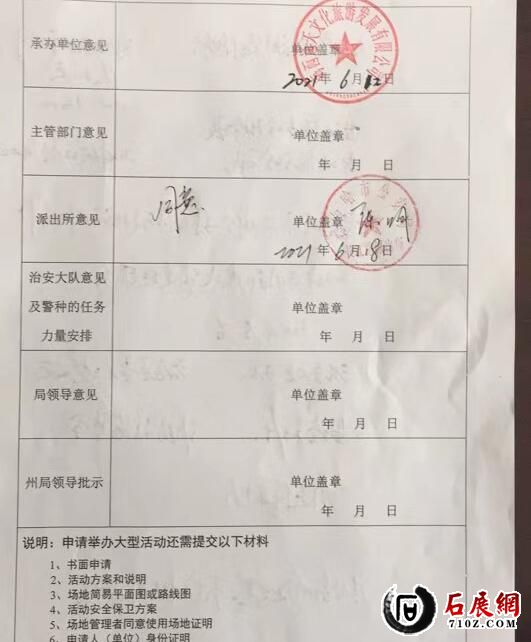 承办单位意见
单位盖章
文化旅游发展有限公司
2021年6月12日
主管部门意见
单位盖章
年 月 日
派出所意见
同意
单位盖章
2021年6月18日
治安大队意见
及警种的任务
力量安排
单位盖章
局领导意见
单位盖章
年 月 日
州局领导批示
单位盖章
年 月 日
说明：申请举办大型活动还需提交以下材料
1、书面申请
2、活动方案和说明
3、场地简易平面图或路线图
4、活动安全保卫方案
5、场地管理者同意使用场地证明
6、申请人（单位）身份证明
石展網
710Z.COM